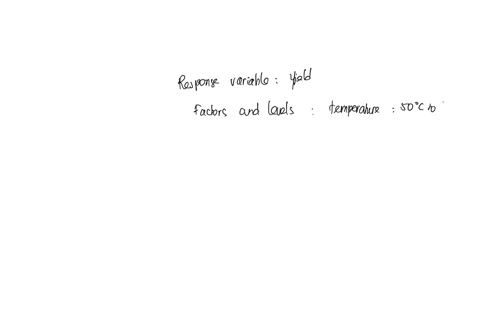 Response variable : yield
Factors and levels : temperature : 50°C to